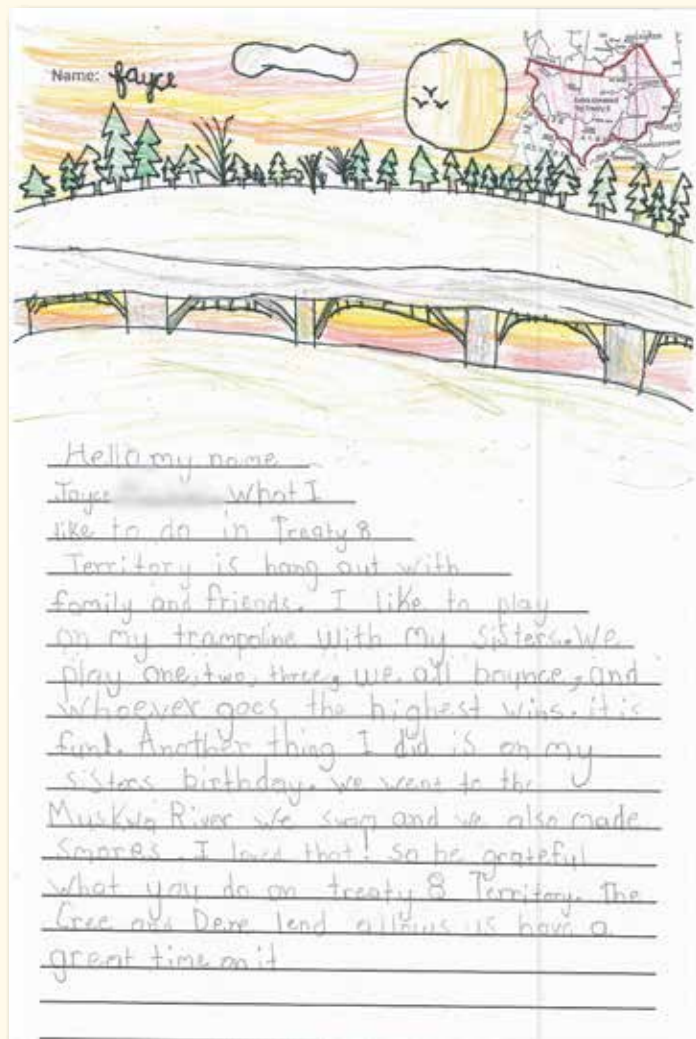 Name: Jayce
Lands covered
by Treaty 8
Hello my name
Jayce What I
like to do in Treaty 8
Territory is hang out with
family and friends. I like to play
on my trampoline with my sisters. We
play one, two, three, we all bounce, and
whoever goes the highest wins. it is
fun!. Another thing I did is on my
sisters birthday. we went to the
Muskwa River we swam and we also made
Smores. I loved that! So be grateful
what you do on treaty 8 Territory. The
Cree and Dene lend allows us have a
great time on it